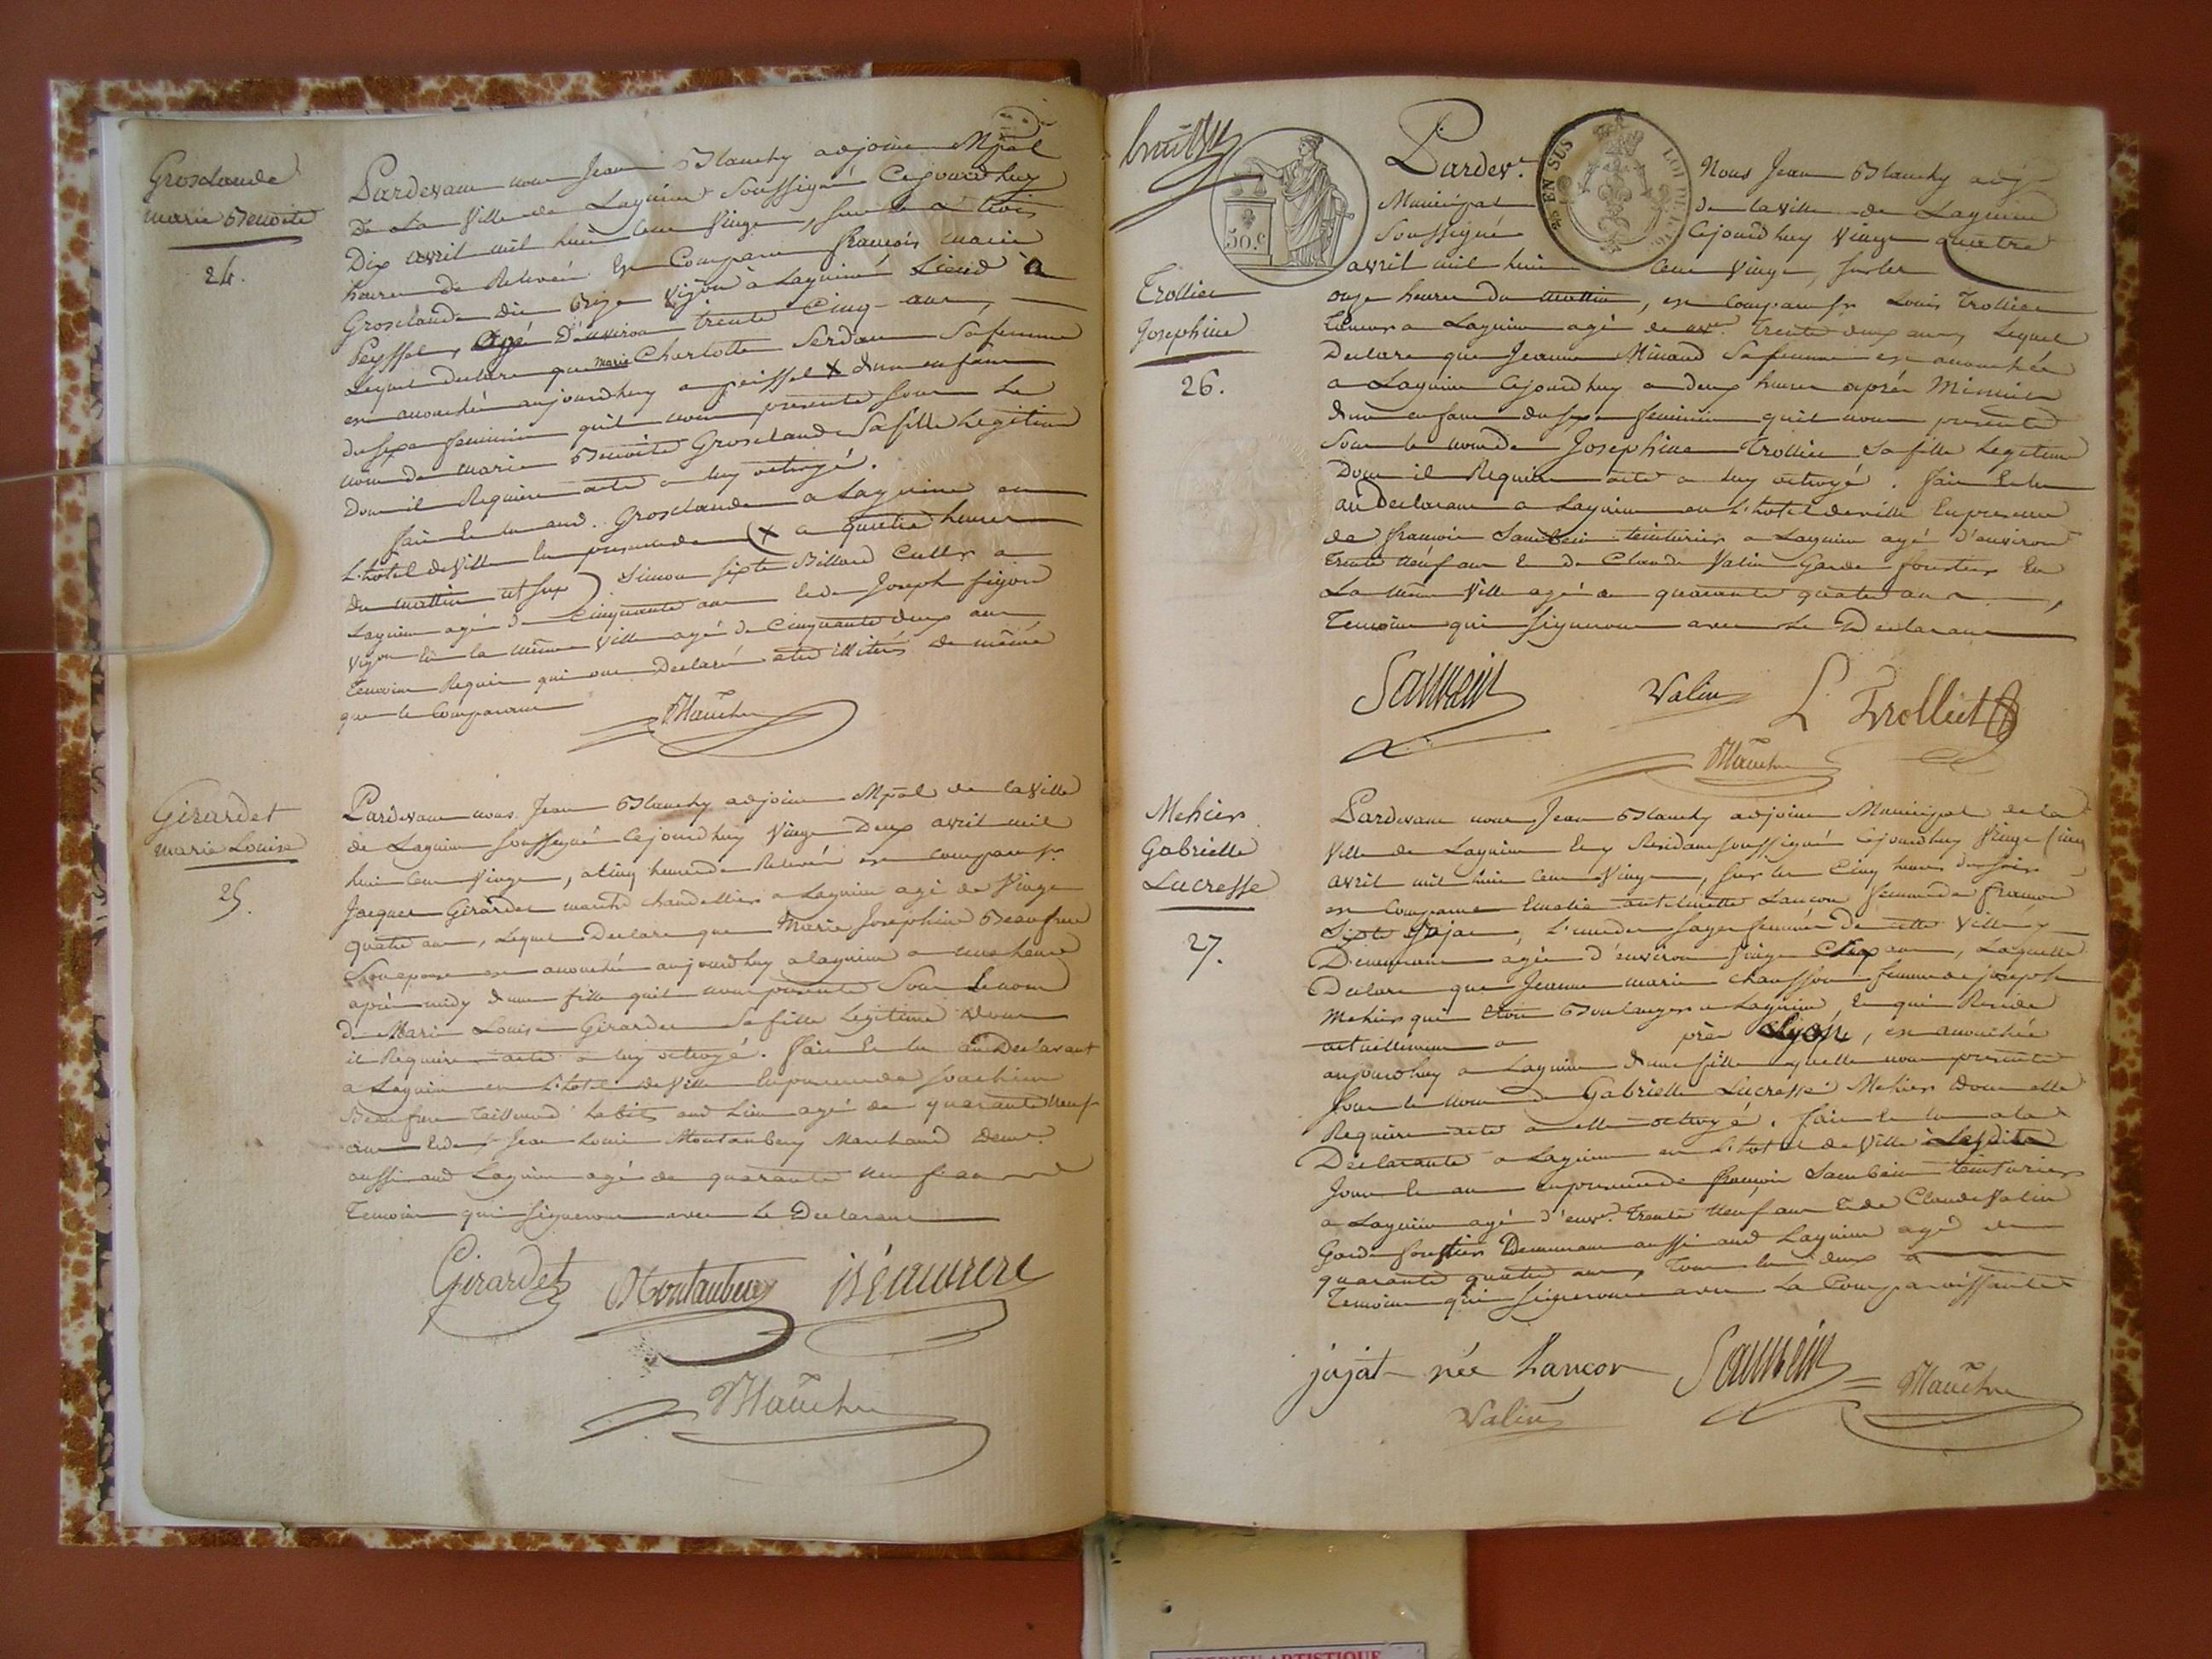 Grosclaude
marie Benoite
24.
Pardevant nous Jean Blanchy adjoint Mpal
De La Ville de Lagnieu Soussigné Cejourdhuy
Dix avril mil huit Cent Vingt, sur les trois
heures de Relevée Est Comparu françois marie
Grosclaude dit Vigon à Lagnieu Lieud à
Peyssel, agé D'environ trente Cinq ans,
Lequel declare que marie Charlotte Serdan Safemme
est accouchée aujourdhuy a peissel X dun enfant
du sexe feminin quil nous presente sous Le
nom de marie Benoite Grosclaude Safille Legitime
Dont il Requiere acte a luy octroyé.
fait Et lu aud. Grosclaude a Lagnieu en
L'hotel de Ville En presence de (X a quatre heures
du mattin) Simon Sixte Billard Cultr a
Lagnieu agé de Cinquante ans et de Joseph
Vigon En la même Ville agé de Cinquante deux ans
Temoins Requis qui ont Declaré etre illiterés de même
que le Comparant
Blanchy
Girardet
marie Louise
25.
Pardevant nous Jean Blanchy adjoint Mpal de la Ville
de Lagnieu soussigné Cejourdhuy Vingt Deux avril mil
huit Cent Vingt, a cinq heures de Relevée est comparu sr
Jacques Girardet marchd chandellier a Lagnieu agé de Vingt
quatre ans, Lequel Declare que Marie Josephine Beaufrere
Son epouse est accouchée aujourdhuy a lagnieu a une heure
après midy dune fille quil nous presente Sous Le nom
de Marie Louise Girardet Safille Legitime Dont
il Requiere acte a luy octroyé. fait Et lu au Declarant
a Lagnieu en L'hotel de Ville En presence de Joachim
Beaufrere Tailleur d habits aud Lieu agé de quarante Neuf
ans Et de Jean Louis Montanbery Marchand Demt
aussi aud Lagnieu agé de quarante neuf ans
Temoins qui signeront avec Le Declarant
Girardet Montanbery
Blanchy
50.c
EN SUS
Pardevt Nous Jean Blanchy adjt
Municipal de la ville de Lagnieu
Soussigné Cejourdhuy Vingt quatre
avril mil huit Cent Vingt, sur les
Trollier
Josephine
26.
onze heures du mattin, est Comparu sr Louis Trollier
a Lagnieu agé de envn Trente deux ans, Lequel
Declare que Jeanne Minaud Safemme est accouchée
a Lagnieu Cejourdhuy a deux heures après Minuit
dun enfant du sexe feminin quil nous presente
Sous le nom de Josephine Trollier Safille Legitime
Dont il Requiere acte a luy octroyé. fait Et lu
au Declarant a Lagnieu en L'hotel de ville En presence
de françois Saubein teinturier a Lagnieu agé d'environ
Trente Neuf ans Et de Claude Valin Garde forestier En
La même Ville agé de quarante quatre ans,
Temoins qui signeront avec Le Declarant
Valin L. Trolliet
Blanchy
Mehier
Gabrielle
Lucresse
27.
Pardevant nous Jean Blanchy adjoint Municipal de la
Ville de Lagnieu En y Residant soussigné Cejourdhuy Vingt
avril mil huit Cent Vingt, sur les Cinq heures du soir
est Comparue Lancon femme de francois
Sixte Jajat, L'une des sages femmes de cette Ville y
Demeurant agée d'environ Vingt Six ans, Laquelle
Declare que Jeanne marie chausson femme de joseph
Mehier qui etoit Boulanger a Lagnieu, En qui Reside
actuellement a près Lyon, est accouchée
aujourdhuy a Lagnieu dune fille quelle nous presente
sous le nom de Gabrielle Lucresse Mehier dont elle
Requiere acte a elle octroyé. fait Et lu a la
Declarante a Lagnieu en L'hotel de Ville Lesdits
Jour Et an en presence de françois Saubein teinturier
a Lagnieu agé d'envn Trente Neuf ans Et de Claude Valin
Garde forestier Demeurant aussi aud Lagnieu agé de
quarante quatre ans, Tous les deux
Temoins qui signeront avec La Comparaissante
jajat née Lancon
Valin Blanchy